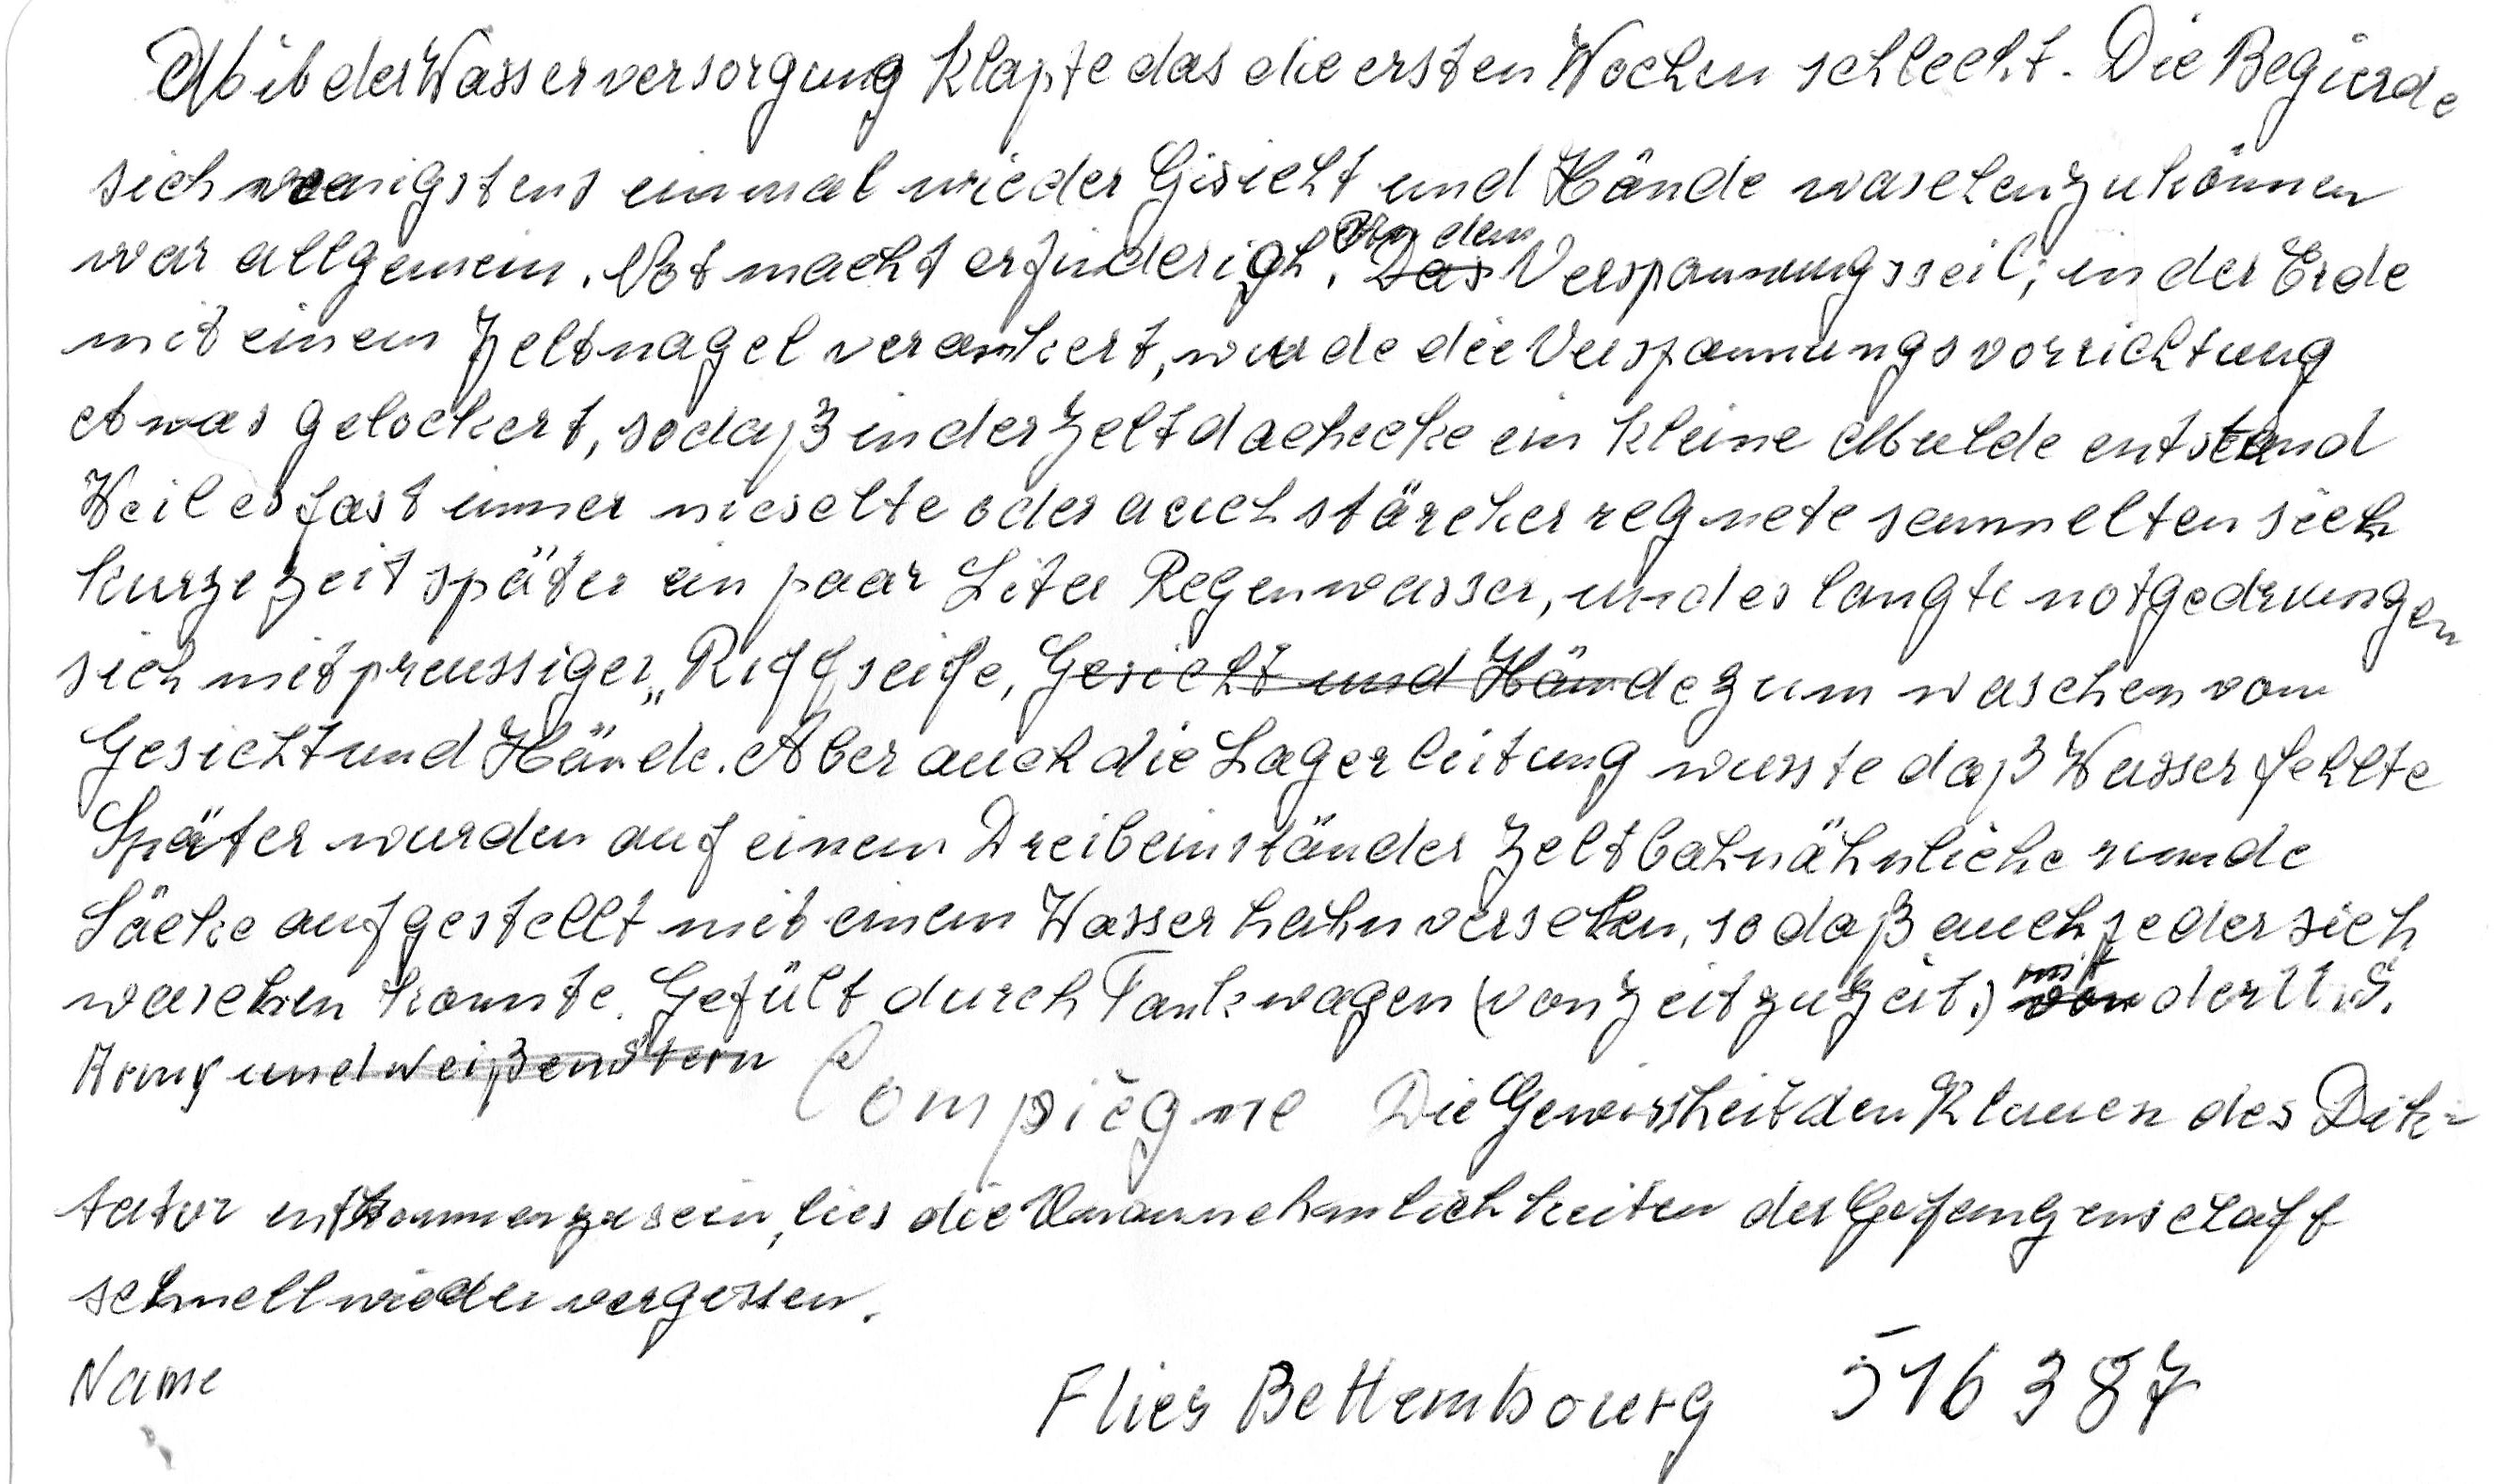 Mit der Wasserversorgung klapte das die ersten Wochen schlecht. Die Begierde
sich wenigstens einmal wieder Gesicht und Hände waschen zu können
war allgemein. Not macht erfinderigh. An dem Das Verspannungsseil, in der Erde
mit einem Zeltnagel verankert, wurde die Verspannungsvorrichtung
etwas gelockert, sodaß in der Zeltdachecke ein kleine Mulde entstand
Weil es fast immer nieselte oder auch stärcker regnete sammelten sich
kurze zeit später ein paar Liter Regenwasser, und es langte notgedrungen
sich mit preussiger „Riffseife, Gesicht und Hände zum waschen vom
Gesicht und Hände. Aber auch die Lagerleitung wusste daß Wasser fehlte
Später wurden auf einem Dreibeinständer Zeltbahnähnliche runde
Säcke aufgestellt mit einem Wasserhahn versehen, so daß auch jeder sich
waschen konnte. Gefült durch Tankwagen (von Zeit zu Zeit.) mit von der U.S.
Army und weißen Stern Compiègne Die Gewissheit den Klauen des Dik-
tator entkommen zu sein, lies die Unannehmlichkeiten der Gefangenschaft
schnell wieder vergessen.
Name Flies Bettembourg 516387